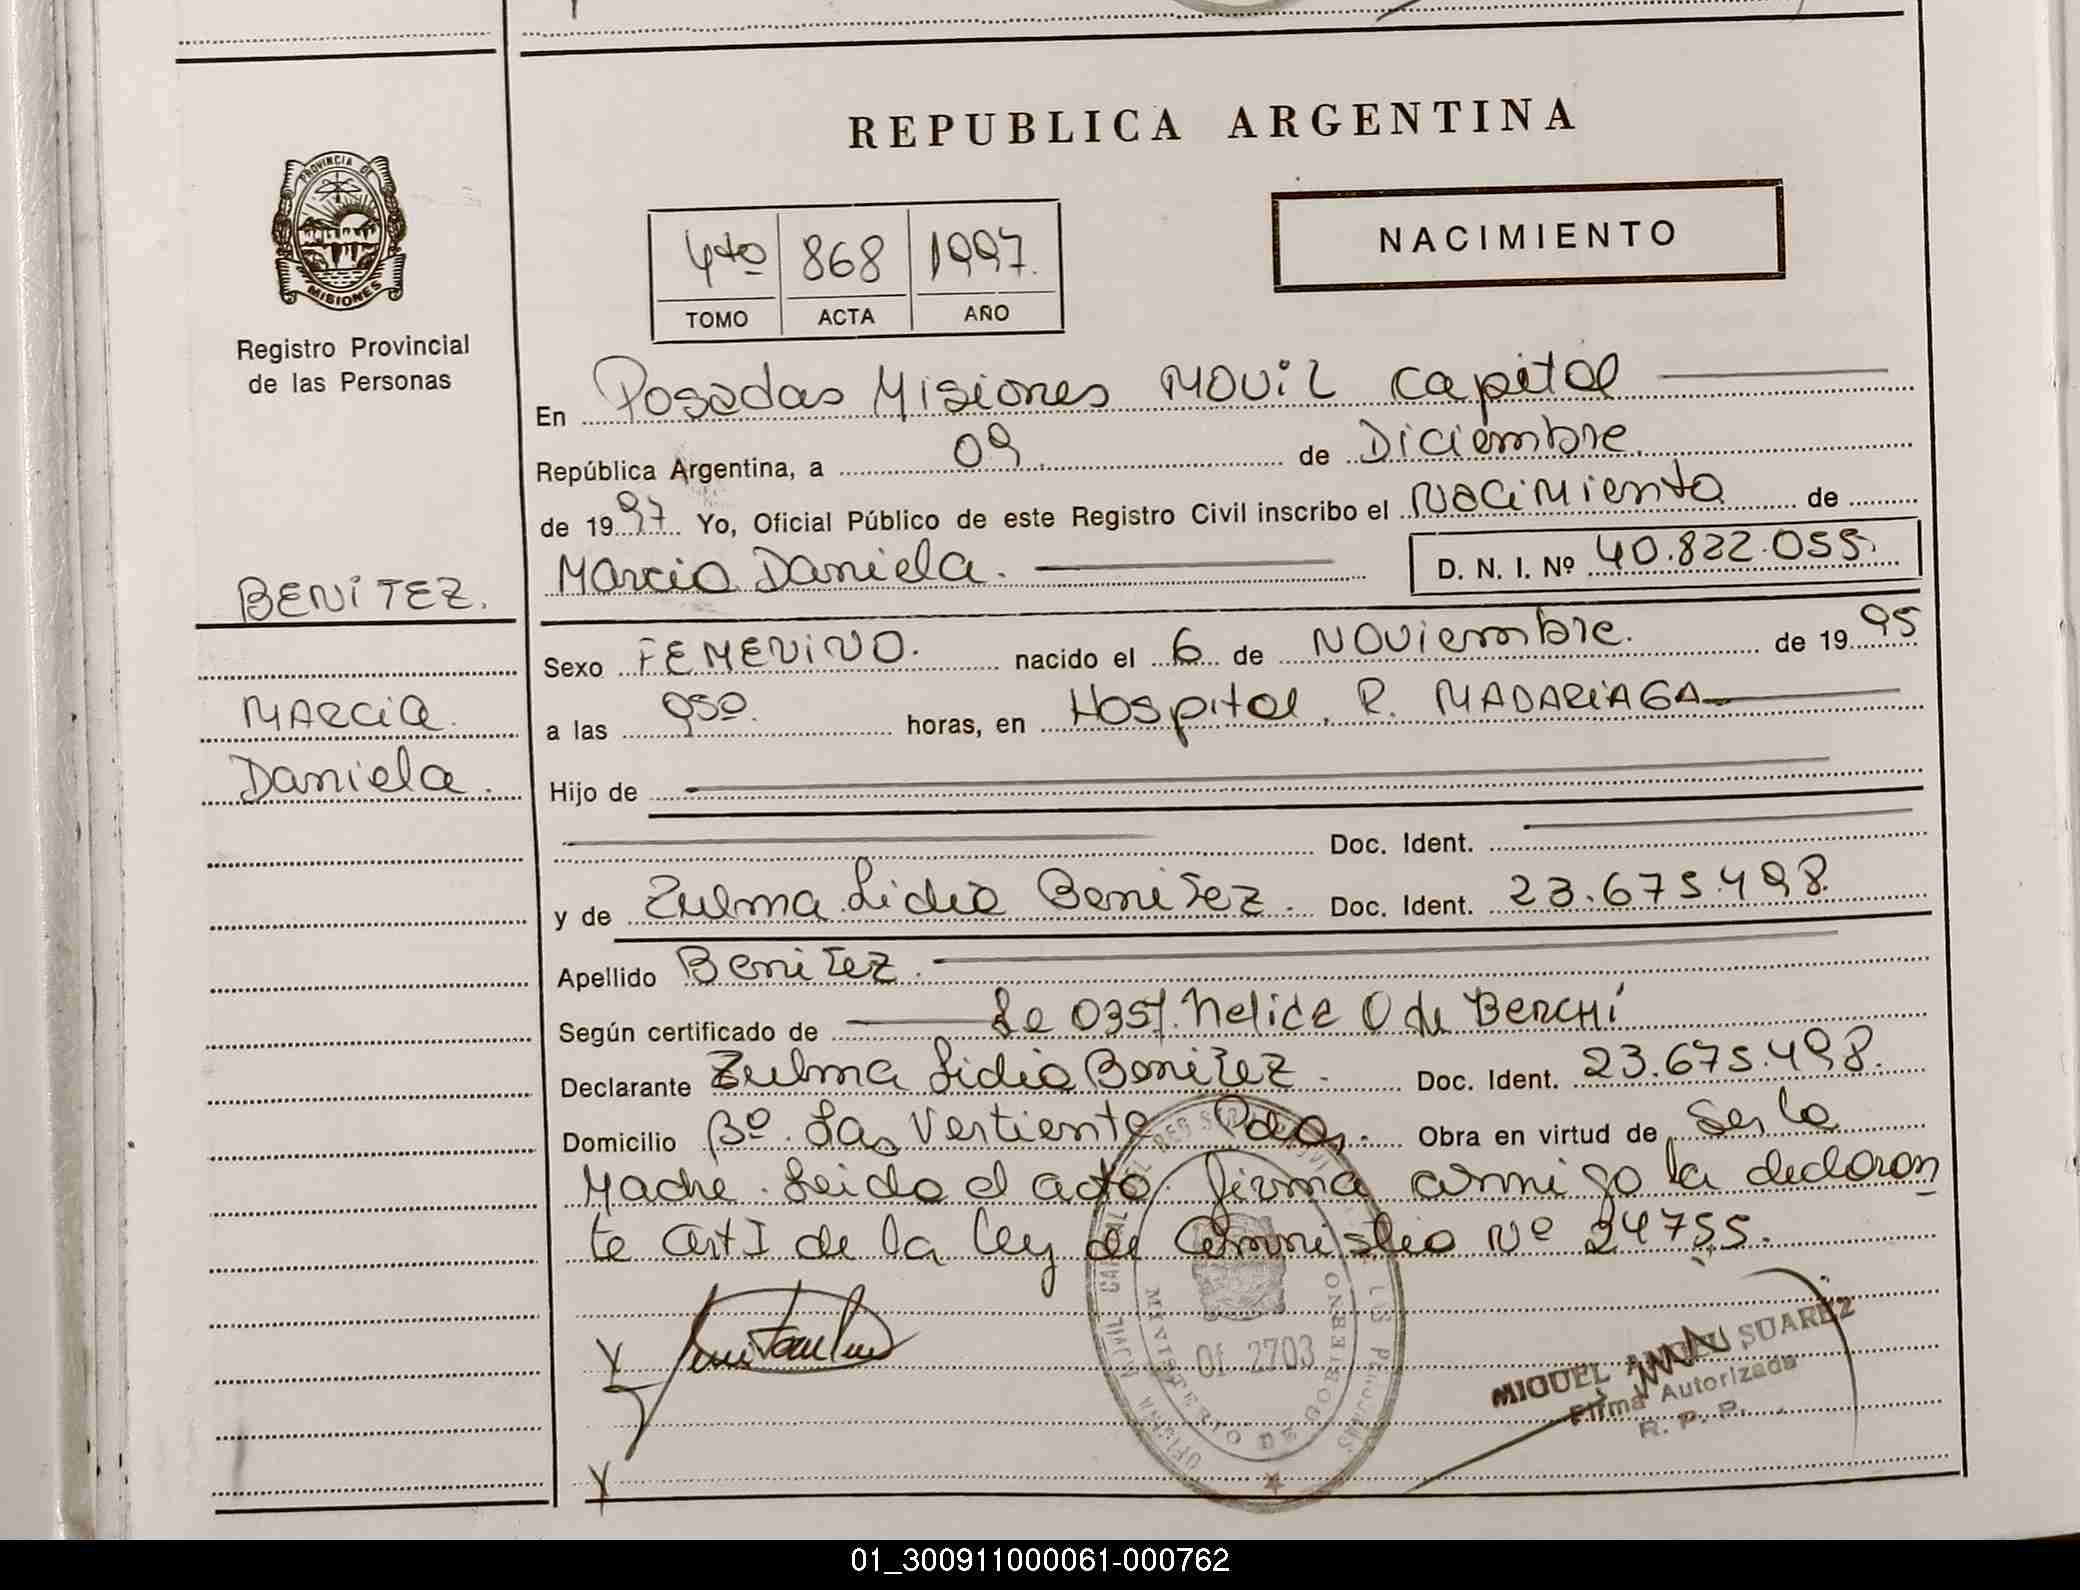 REPUBLICA ARGENTINA
PROVINCIA DE
MISIONES
Registro Provincial
de las Personas
NACIMIENTO
4to 868 1997.
TOMO ACTA AÑO
En Posadas Misiones MOVIL Capital
República Argentina, a 09 de Diciembre.
de 1997 Yo, Oficial Público de este Registro Civil inscribo el Nacimiento de
Marcia Daniela. D. N. I. Nº 40.822.055.
BENITEZ.
Sexo FEMENINO. nacido el 6 de NOViembre. de 1995
MARCIA.
a las 950. horas, en Hospital. R. MADARIAGA
Daniela.
Hijo de
Doc. Ident.
y de Zulma Lidia Benitez. Doc. Ident. 23.675.498.
Apellido Benitez.
Según certificado de de BERCHI
Declarante Zulma Lidia Benitez. Doc. Ident. 23.675.498.
Domicilio Bº. Las Vertiente Pdas. Obra en virtud de Ser la
Madre. Leida el acta firma conmigo la declaran
te art I de la ley de amnistia Nº 24755.
MINISTERIO DE GOBIERNO
Of 2703
MIGUEL ANGEL SUAREZ
Firma Autorizada
R. P. P.
01_300911000061-000762